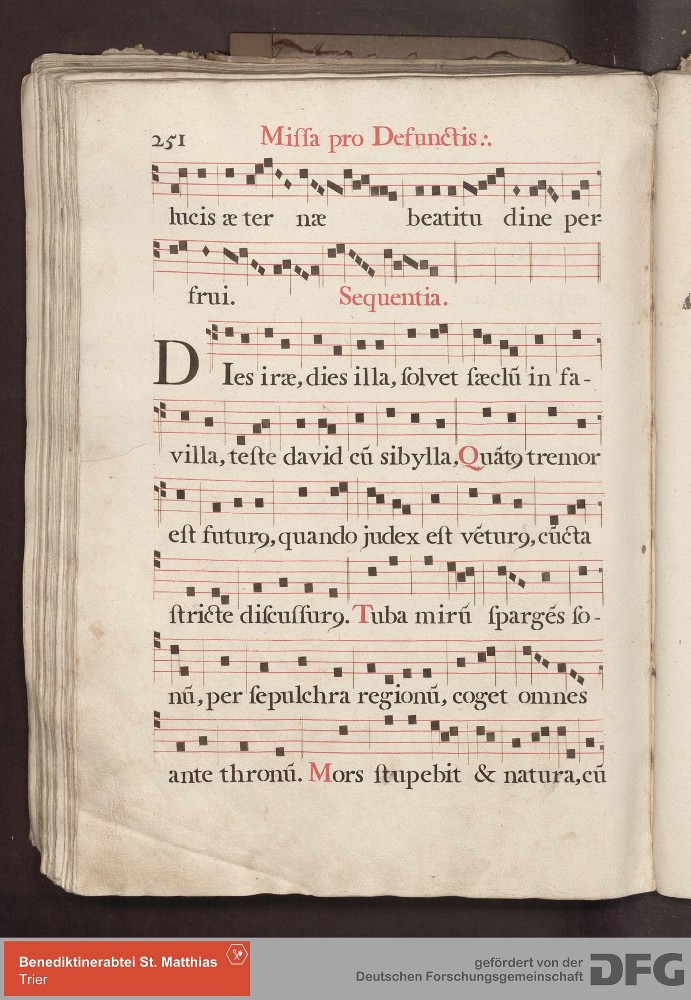 251 Miſſa pro Defunctis∴
lucis æ ter næ beatitu dine per-
frui. Sequentia.
DIes iræ, dies illa, ſolvet ſæclū in fa-
villa, teſte david cū sibylla, Quāt9 tremor
eſt futur9, quando judex eſt vētur9, cūcta
ſtricte diſcuſſur9. Tuba mirū ſpargēs ſo-
nū, per ſepulchra regionū, coget omnes
ante thronū. Mors ſtupebit & natura, cū
Benediktinerabtei St. Matthias
Trier
gefördert von der
Deutschen Forschungsgemeinschaft DFG